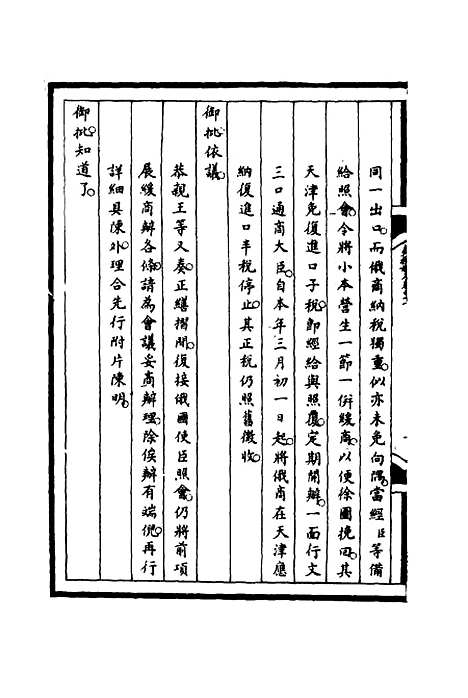 同一出口。而俄商納稅獨重。似亦未免向隅。當經臣等備
給照會。令將小本營生一節。一併緩商。以便徐圖挽回。其
天津免復進口子稅。即經給與照覆。定期開辦。一面行文
三口通商大臣。自本年三月初一日起。將俄商在天津應
納復進口半稅停止。其正稅仍照舊徵收。
御批依議。
恭親王等又奏。正繕摺間。復接俄國使臣照會。仍將前項
展緩商辦各條。請為會議妥商辦理。除俟辦有端倪。再行
詳細具陳外。理合先行附片陳明。
御批知道了。